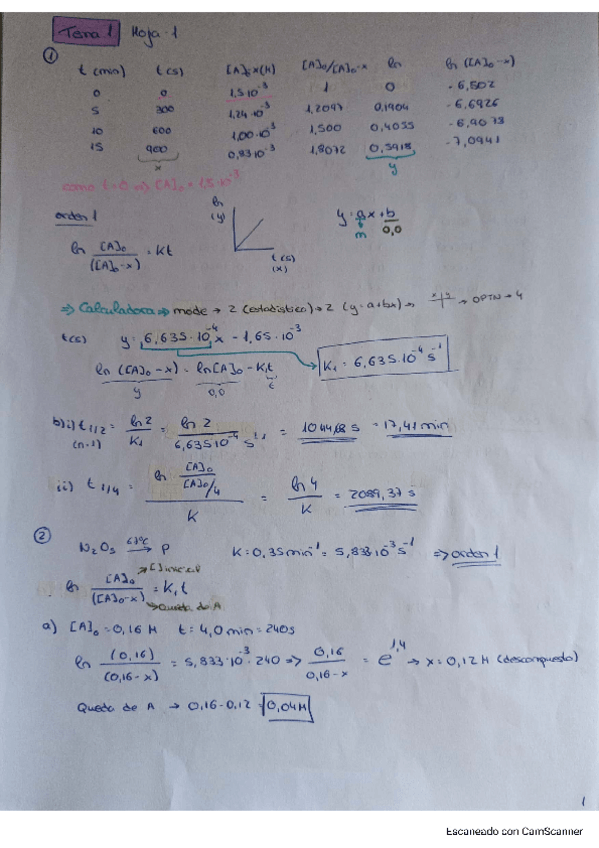 Tema 1 Hoja - 1
①
t (min) t (s) [A]₀-x (M) [A]₀/[A]₀-x ln ln ([A]₀-x)
0 0 1,5·10⁻³ 1 0 -6,502
5 300 1,24·10⁻³ 1,2097 0,1904 -6,6926
10 600 1,00·10⁻³ 1,500 0,4055 -6,9078
15 900 0,83·10⁻³ 1,8072 0,5918 -7,0941
x y
como t=0 → [A]₀ = 1,5·10⁻³
orden 1 ln (y) t (s) (x) y = ax + b
m 0,0
ln [A]₀/([A]₀-x) = Kt
⇒ Calculadora → mode → 2 (estadístico) → 2 (y=a+bx) → x|y → OPTN → 4
t(s) y = 6,635·10⁻⁴x - 1,65·10⁻³
K₁ = 6,635·10⁻⁴ s⁻¹
ln ([A]₀-x) = ln[A]₀ - K₁t
y 0,0 t
b) i) t 1/2 = ln 2/K₁ = ln 2/6,635·10⁻⁴ s⁻¹ = 1044,68 s = 17,41 min
(n=1)
ii) t 1/4 = ln [A]₀/[A]₀/4 / K = ln 4/K = 2089,37 s
②
N₂O₅ 67ºC → P K = 0,35 min⁻¹ = 5,833·10⁻³ s⁻¹ ⇒ orden 1
ln [A]₀/([A]₀-x) = K₁t
→ [ ] inicial
→ Queda de A
a) [A]₀ = 0,16 M t = 4,0 min = 240s
ln (0,16)/(0,16-x) = 5,833·10⁻³·240 ⇒ 0,16/0,16-x = e^1,4 → x = 0,12 M (descompuesto)
Queda de A → 0,16-0,12 = 0,04 M
1
Escaneado con CamScanner